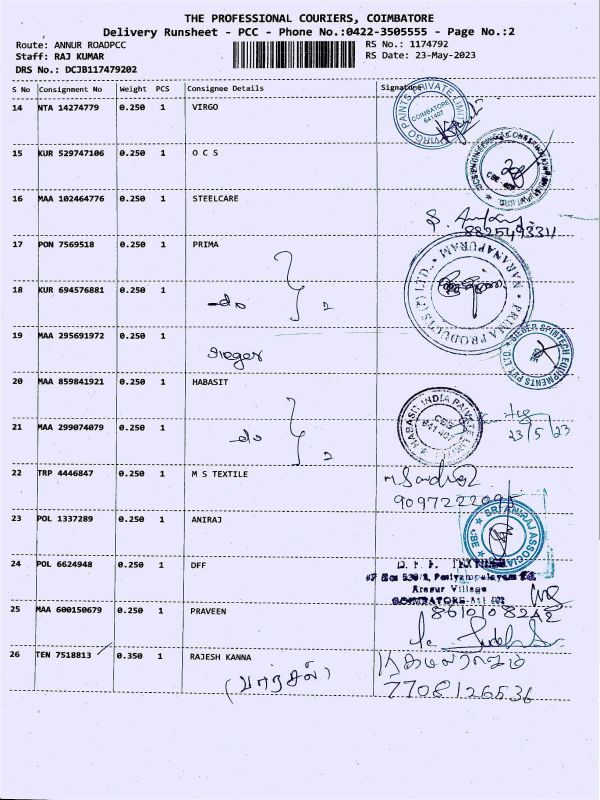 THE PROFESSIONAL COURIERS, COIMBATORE
Delivery Runsheet - PCC - Phone No.:0422-3505555 - Page No.:2
Route: ANNUR ROADPCC RS No.: 1174792
Staff: RAJ KUMAR RS Date: 23-May-2023
DRS No.: DCJB117479202
S No Consignment No Weight PCS Consignee Details Signature
14 NTA 14274779 0.250 1 VIRGO
VIRGO PAINTS PRIVATE LIMITED
COIMBATORE
641407
15 KUR 529747106 0.250 1 O C S
16 MAA 102464776 0.250 1 STEELCARE
8825493311
17 PON 7569518 0.250 1 PRIMA
PRIMA PRODUCTS (P) LTD.
NARANAPURAM
18 KUR 694576881 0.250 1 -do 2
19 MAA 295691972 0.250 1 sieger
SIEGER SPINTECH EQUIPMENTS PVT LTD
CBE
20 MAA 859841921 0.250 1 HABASIT
HABASIT INDIA PRIVATE LIMITED
CBE
641 407
21 MAA 299074079 0.250 1 -do 2
23/5/23
22 TRP 4446847 0.250 1 M S TEXTILE
9097222095
23 POL 1337289 0.250 1 ANIRAJ
SRI ANIRAJ ASSOCIATES
CBE
24 POL 6624948 0.250 1 DFF
Arasur Village
COIMBATORE-641 407
25 MAA 600150679 0.250 1 PRAVEEN
8610108242
26 TEN 7518813 0.350 1 RAJESH KANNA
(பார்சல்)
7708126536